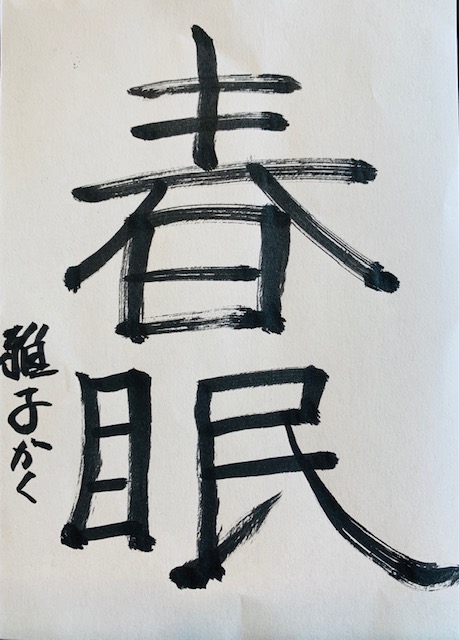 春眠
雅子かく